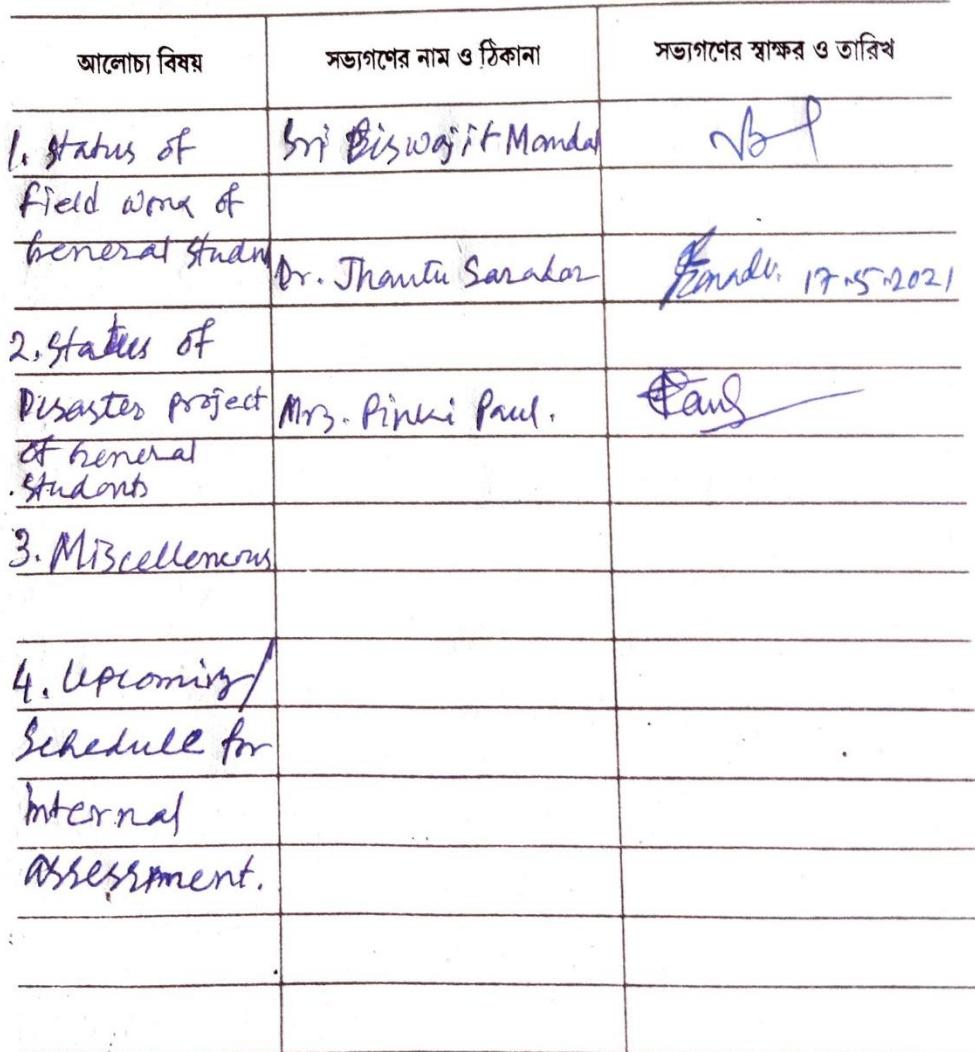 আলোচ্য বিষয়
সভ্যগণের নাম ও ঠিকানা
সভ্যগণের স্বাক্ষর ও তারিখ
1. Status of
Field work of
General Studn
Sri Biswajit Mondal
Dr. Jhantu Saradar
17.5.2021
2. Status of
Disaster project
of General
Students
Mrs. Pinki Paul.
Paul
3. Miscellenous
4. Upcoming
Schedule for
internal
assessment.